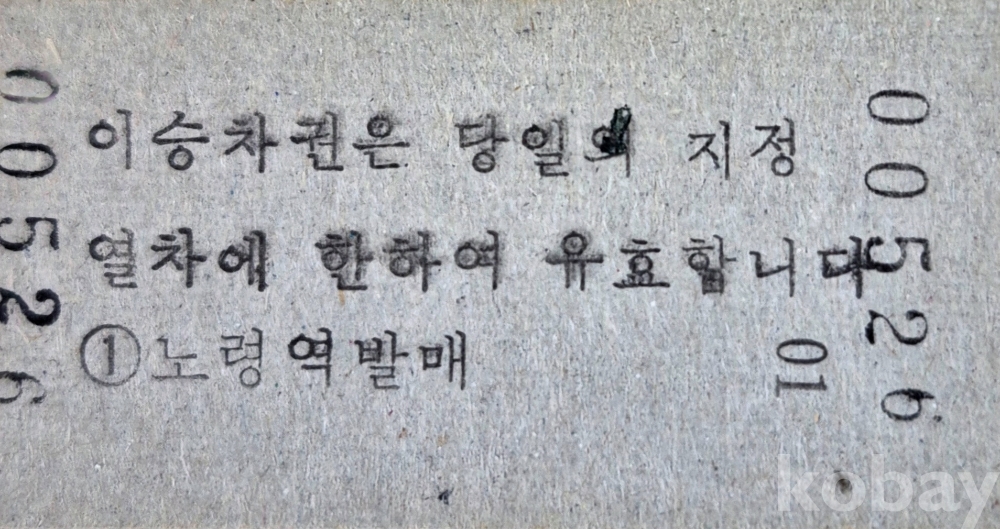 00526
이승차권은 당일의 지정
열차에 한하여 유효합니다
①노령역발매
01
00526
kobay